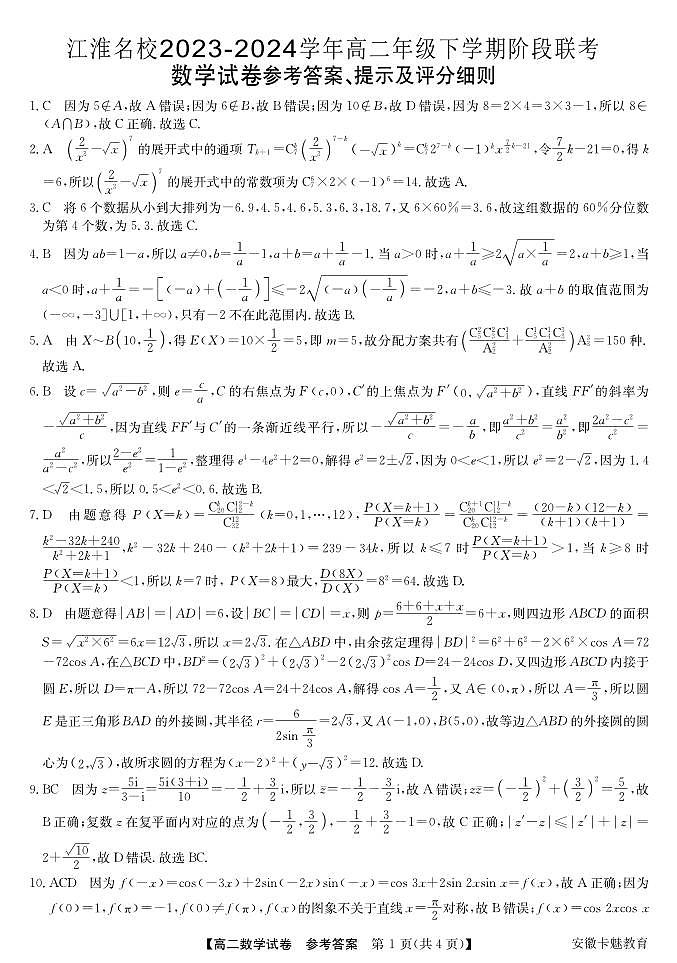 江淮名校2023-2024学年高二年级下学期阶段联考
数学试卷参考答案、提示及评分细则
1. C 因为 5∉A,故 A 错误;因为 6∉B,故 B 错误;因为 10∉B,故 D 错误,因为 8=2×4=3×3-1,所以 8∈
(A∩B),故 C 正确. 故选 C.
2. A (2/x³-√x)⁷ 的展开式中的通项 T_{k+1}=C₇^k(2/x³)^{7-k}(-√x)^k=C₇^k 2^{7-k}(-1)^k x^{7/2 k-21},令 7/2 k-21=0,得 k
=6,所以(2/x³-√x)⁷ 的展开式中的常数项为 C₇⁶×2×(-1)⁶=14. 故选 A.
3. C 将 6 个数据从小到大排列为-6.9,4.5,4.6,5.3,6.3,18.7,又 6×60%=3.6,故这组数据的 60%分位数
为第 4 个数,为 5.3. 故选 C.
4. B 因为 ab=1-a,所以 a≠0,b=1/a-1,a+b=a+1/a-1. 当 a>0 时,a+1/a≥2√(a×1/a)=2,a+b≥1,当
a<0 时,a+1/a=-[(-a)+(-1/a)]≤-2√((-a)(-1/a))=-2,a+b≤-3. 故 a+b 的取值范围为
(-∞,-3]∪[1,+∞),只有-2 不在此范围内. 故选 B.
5. A 由 X~B(10,1/2),得 E(X)=10×1/2=5,即 m=5,故分配方案共有(C₅²C₃²C₁¹/A₂²+C₅¹C₄¹C₃³/A₂²)A₃³=150 种.
故选 A.
6. B 设 c=√(a²-b²),则 e=c/a,C 的右焦点为 F(c,0),C′的上焦点为 F′(0,√(a²+b²)),直线 FF′的斜率为
-√(a²+b²)/c,因为直线 FF′与 C′的一条渐近线平行,所以-√(a²+b²)/c=-a/b,即(a²+b²)/c²=a²/b²,即(2a²-c²)/c²=
a²/(a²-c²),所以(2-e²)/e²=1/(1-e²),整理得 e⁴-4e²+2=0,解得 e²=2±√2,因为 0<e<1,所以 e²=2-√2,因为 1.4
<√2<1.5,所以 0.5<e²<0.6. 故选 B.
7. D 由题意得 P(X=k)=C₂₀^k C₁₂^{12-k}/C₃₂^{12}(k=0,1,…,12),P(X=k+1)/P(X=k)=C₂₀^{k+1}C₁₂^{11-k}/C₂₀^k C₁₂^{12-k}=(20-k)(12-k)/(k+1)(k+1)=
(k²-32k+240)/(k²+2k+1),k²-32k+240-(k²+2k+1)=239-34k,所以 k≤7 时P(X=k+1)/P(X=k)>1,当 k≥8 时
P(X=k+1)/P(X=k)<1,所以 k=7 时,P(X=8)最大,D(8X)/D(X)=8²=64. 故选 D.
8. D 由题意得|AB|=|AD|=6,设|BC|=|CD|=x,则 p=(6+6+x+x)/2=6+x,则四边形 ABCD 的面积
S=√(x²×6²)=6x=12√3,所以 x=2√3. 在△ABD 中,由余弦定理得|BD|²=6²+6²-2×6²×cos A=72
-72cos A,在△BCD 中,BD²=(2√3)²+(2√3)²-2(2√3)²cos D=24-24cos D,又四边形 ABCD 内接于
圆 E,所以 D=π-A,所以 72-72cos A=24+24cos A,解得 cos A=1/2,又 A∈(0,π),所以 A=π/3,所以圆
E 是正三角形 BAD 的外接圆,其半径 r=6/(2sin π/3)=2√3,又 A(-1,0),B(5,0),故等边△ABD 的外接圆的圆
心为(2,√3),故所求圆的方程为(x-2)²+(y-√3)²=12. 故选 D.
9. BC 因为 z=5i/(3-i)=5i(3+i)/10=-1/2+3/2i,所以 z̄=-1/2-3/2i,故 A 错误;zz̄=(-1/2)²+(3/2)²=5/2,故
B 正确;复数 z 在复平面内对应的点为(-1/2,3/2),-1/2+3/2-1=0,故 C 正确;|z′-z|≤|z′|+|z|=
2+√10/2,故 D 错误. 故选 BC.
10. ACD 因为 f(-x)=cos(-3x)+2sin(-2x)sin(-x)=cos 3x+2sin 2xsin x=f(x),故 A 正确;因为
f(0)=1,f(π)=-1,f(0)≠f(π),f(x)的图象不关于直线 x=π/2对称,故 B 错误;f(x)=cos 2xcos x
【高二数学试卷 参考答案 第 1 页(共 4 页)】 安徽卡魅教育